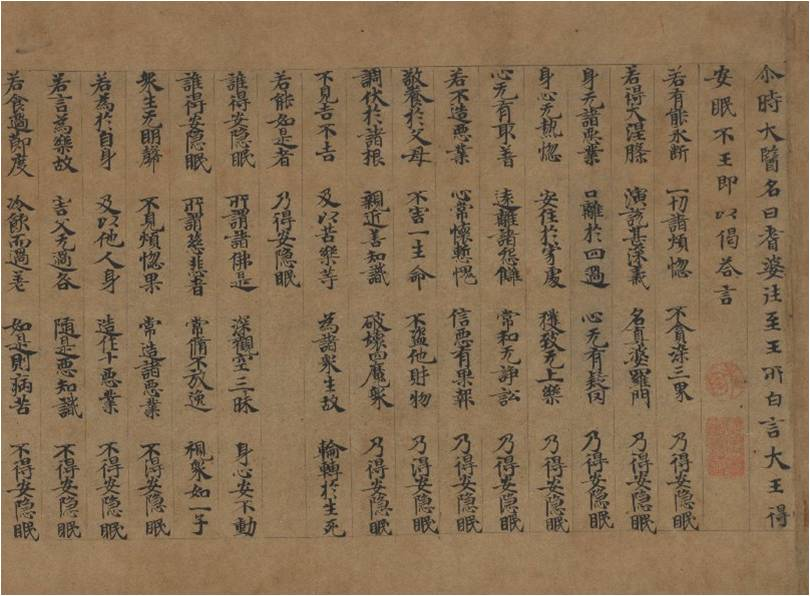 尒時大醫名曰耆婆往至王所白言大王得
安眠不王即以偈荅言
若有能永斷 一切諸煩惱 不貪染三界 乃得安隐眠
若得大涅槃 演説甚深義 名真婆羅門 乃得安隐眠
身无諸悪業 口離於四過 心无有疑 乃得安隐眠
身心无熱惱 安住於寂處 獲致无上樂 乃得安隐眠
心无有取著 遠離諸怨讎 常和无諍訟 乃得安隐眠
若不造悪業 心常懷慙愧 信悪有果報 乃得安隐眠
敬養於父母 不害一生命 不盜他財物 乃得安隐眠
調伏於諸根 親近善知識 破壞四魔衆 乃得安隐眠
不見吉不吉 及以苦樂等 為諸衆生故 輪轉於生死
若能如是者 乃得安隐眠
誰得安隐眠 所謂諸佛是 深觀空三昧 身心安不動
誰得安隐眠 所謂慈悲者 常脩不放逸 視衆如一子
衆生无明瞖 不見煩惱果 常造諸悪業 不得安隐眠
若為於自身 及以他人身 造作十悪業 不得安隐眠
若言為樂故 害父无過各 随是悪知識 不得安隐眠
若食過節度 冷飲而過差 如是則病苦 不得安隐眠